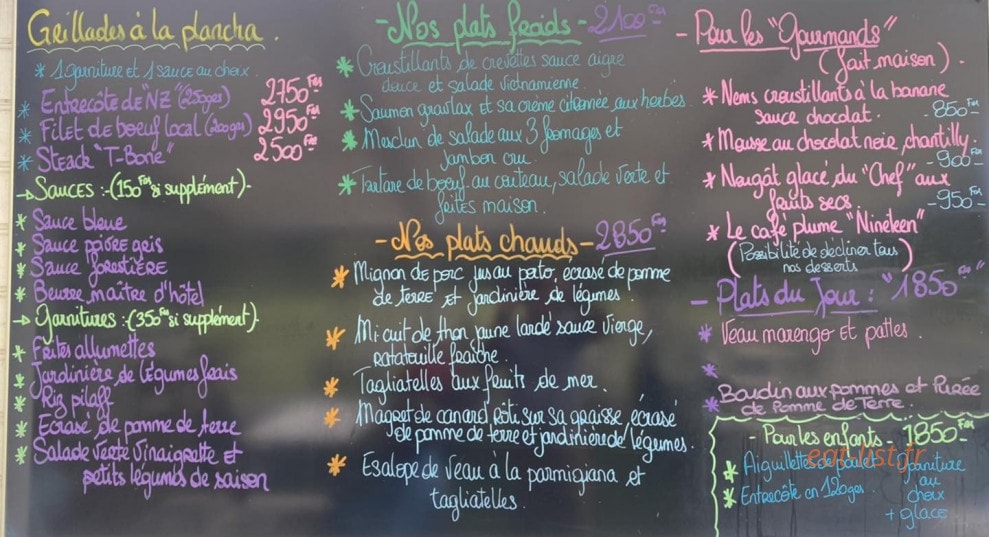 Grillades à la plancha.
* 1 garniture et 1 sauce au choix.
* Entrecôte de "NZ" (250grs) 2750 Frs
* Filet de boeuf local (200grs) 2950 Frs
* Steack "T-Bone" 2500 Frs
→ Sauces :-(150 Frs si supplément)-
* Sauce bleue
* Sauce poivre gris
* Sauce forestière
* Beurre maître d'hôtel
→ Garnitures :-(350 Frs si supplément).
* Frites allumettes
* Jardinière de légumes frais
* Riz pilaff
* Ecrasé de pomme de terre
* Salade verte vinaigrette et
petits légumes de saison
- Nos plats froids - 2100 Frs
* Croustillants de crevettes sauce aigre
douce et salade vietnamienne.
* Saumon gravlax et sa crème citronnée aux herbes.
* Mesclun de salade aux 3 fromages et
jambon cru.
* Tartare de boeuf au couteau, salade verte et
frites maison.
- Nos plats chauds - 2850 Frs
* Mignon de porc jus au porto, écrasé de pomme
de terre et jardinière de légumes.
* Mi cuit de thon jaune lardé sauce vierge,
ratatouille fraîche.
* Tagliatelles aux fruits de mer.
* Magret de canard rôti sur sa graisse, écrasé
de pomme de terre et jardinière de légumes.
* Escalope de veau à la parmigiana et
tagliatelles.
- Pour les "Gourmands"
(fait maison).
* Nems croustillants à la banane
sauce chocolat. - 850 Frs
* Mousse au chocolat noir, chantilly.
- 900 Frs
* Nougât glacé du "Chef" aux
fruits secs. - 950 Frs
* Le café plume "Nineteen"
(Possibilité de décliner tous
nos desserts)
- Plats du Jour : "1850 Frs"
* Veau marengo et pattes.
*
* Boudin aux pommes et Purée
de Pomme de Terre.
- Pour les enfants - 1850 Frs
* Aiguillettes de poulet
* Entrecôte en 120grs.
garniture
au
choix
+ glace
eat-list.fr